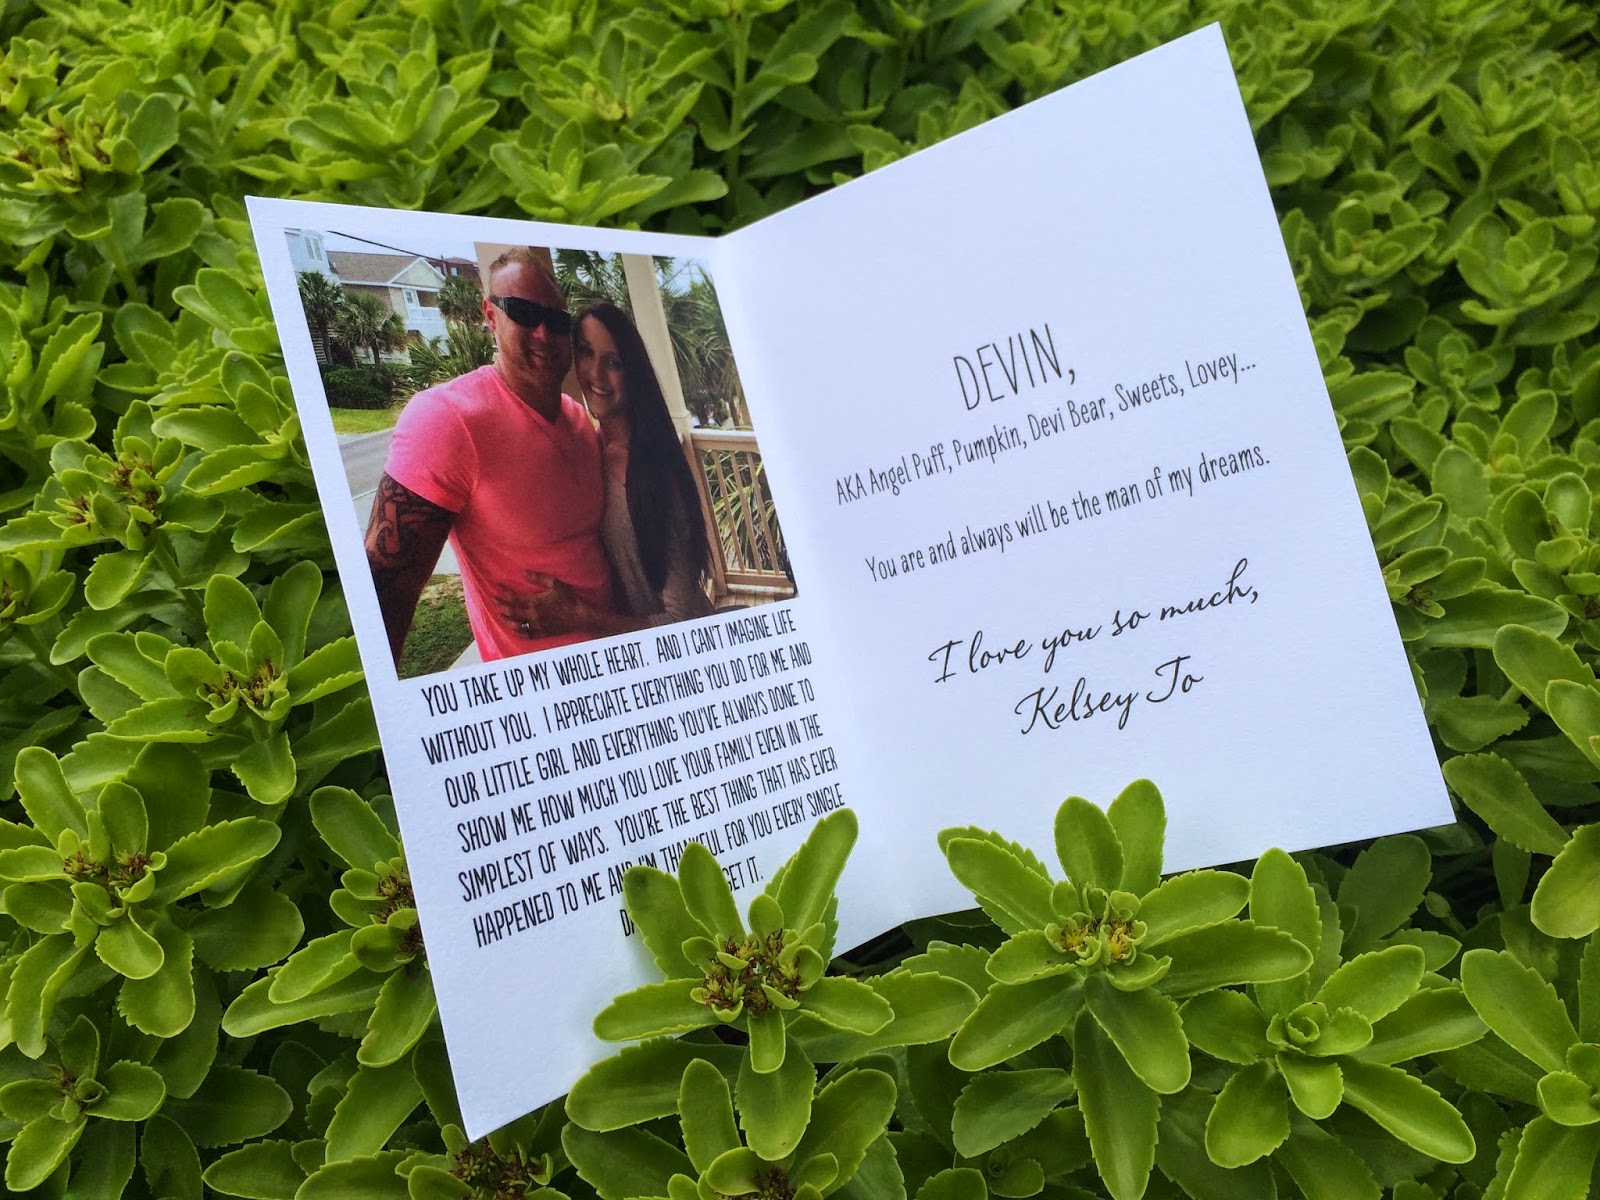 YOU TAKE UP MY WHOLE HEART. AND I CAN'T IMAGINE LIFE
WITHOUT YOU. I APPRECIATE EVERYTHING YOU DO FOR ME AND
OUR LITTLE GIRL AND EVERYTHING YOU'VE ALWAYS DONE TO
SHOW ME HOW MUCH YOU LOVE YOUR FAMILY EVEN IN THE
SIMPLEST OF WAYS. YOU'RE THE BEST THING THAT HAS EVER
HAPPENED TO ME AND I'M THANKFUL FOR YOU EVERY SINGLE
GET IT.
DEVIN,
AKA Angel Puff, Pumpkin, Devi Bear, Sweets, Lovey...
You are and always will be the man of my dreams.
I love you so much,
Kelsey Jo